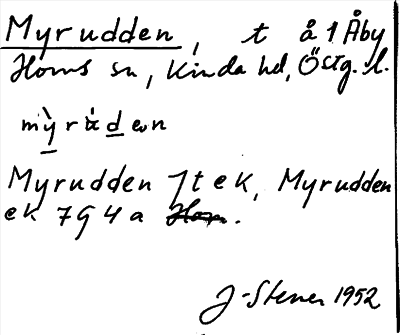 Myrudden, t å 1 Åby
Horns sn, Kinda hd, Östg. l.
Myrudden Jt ek, Myrudden
ek 7G4a Horn.
J-Stener 1952